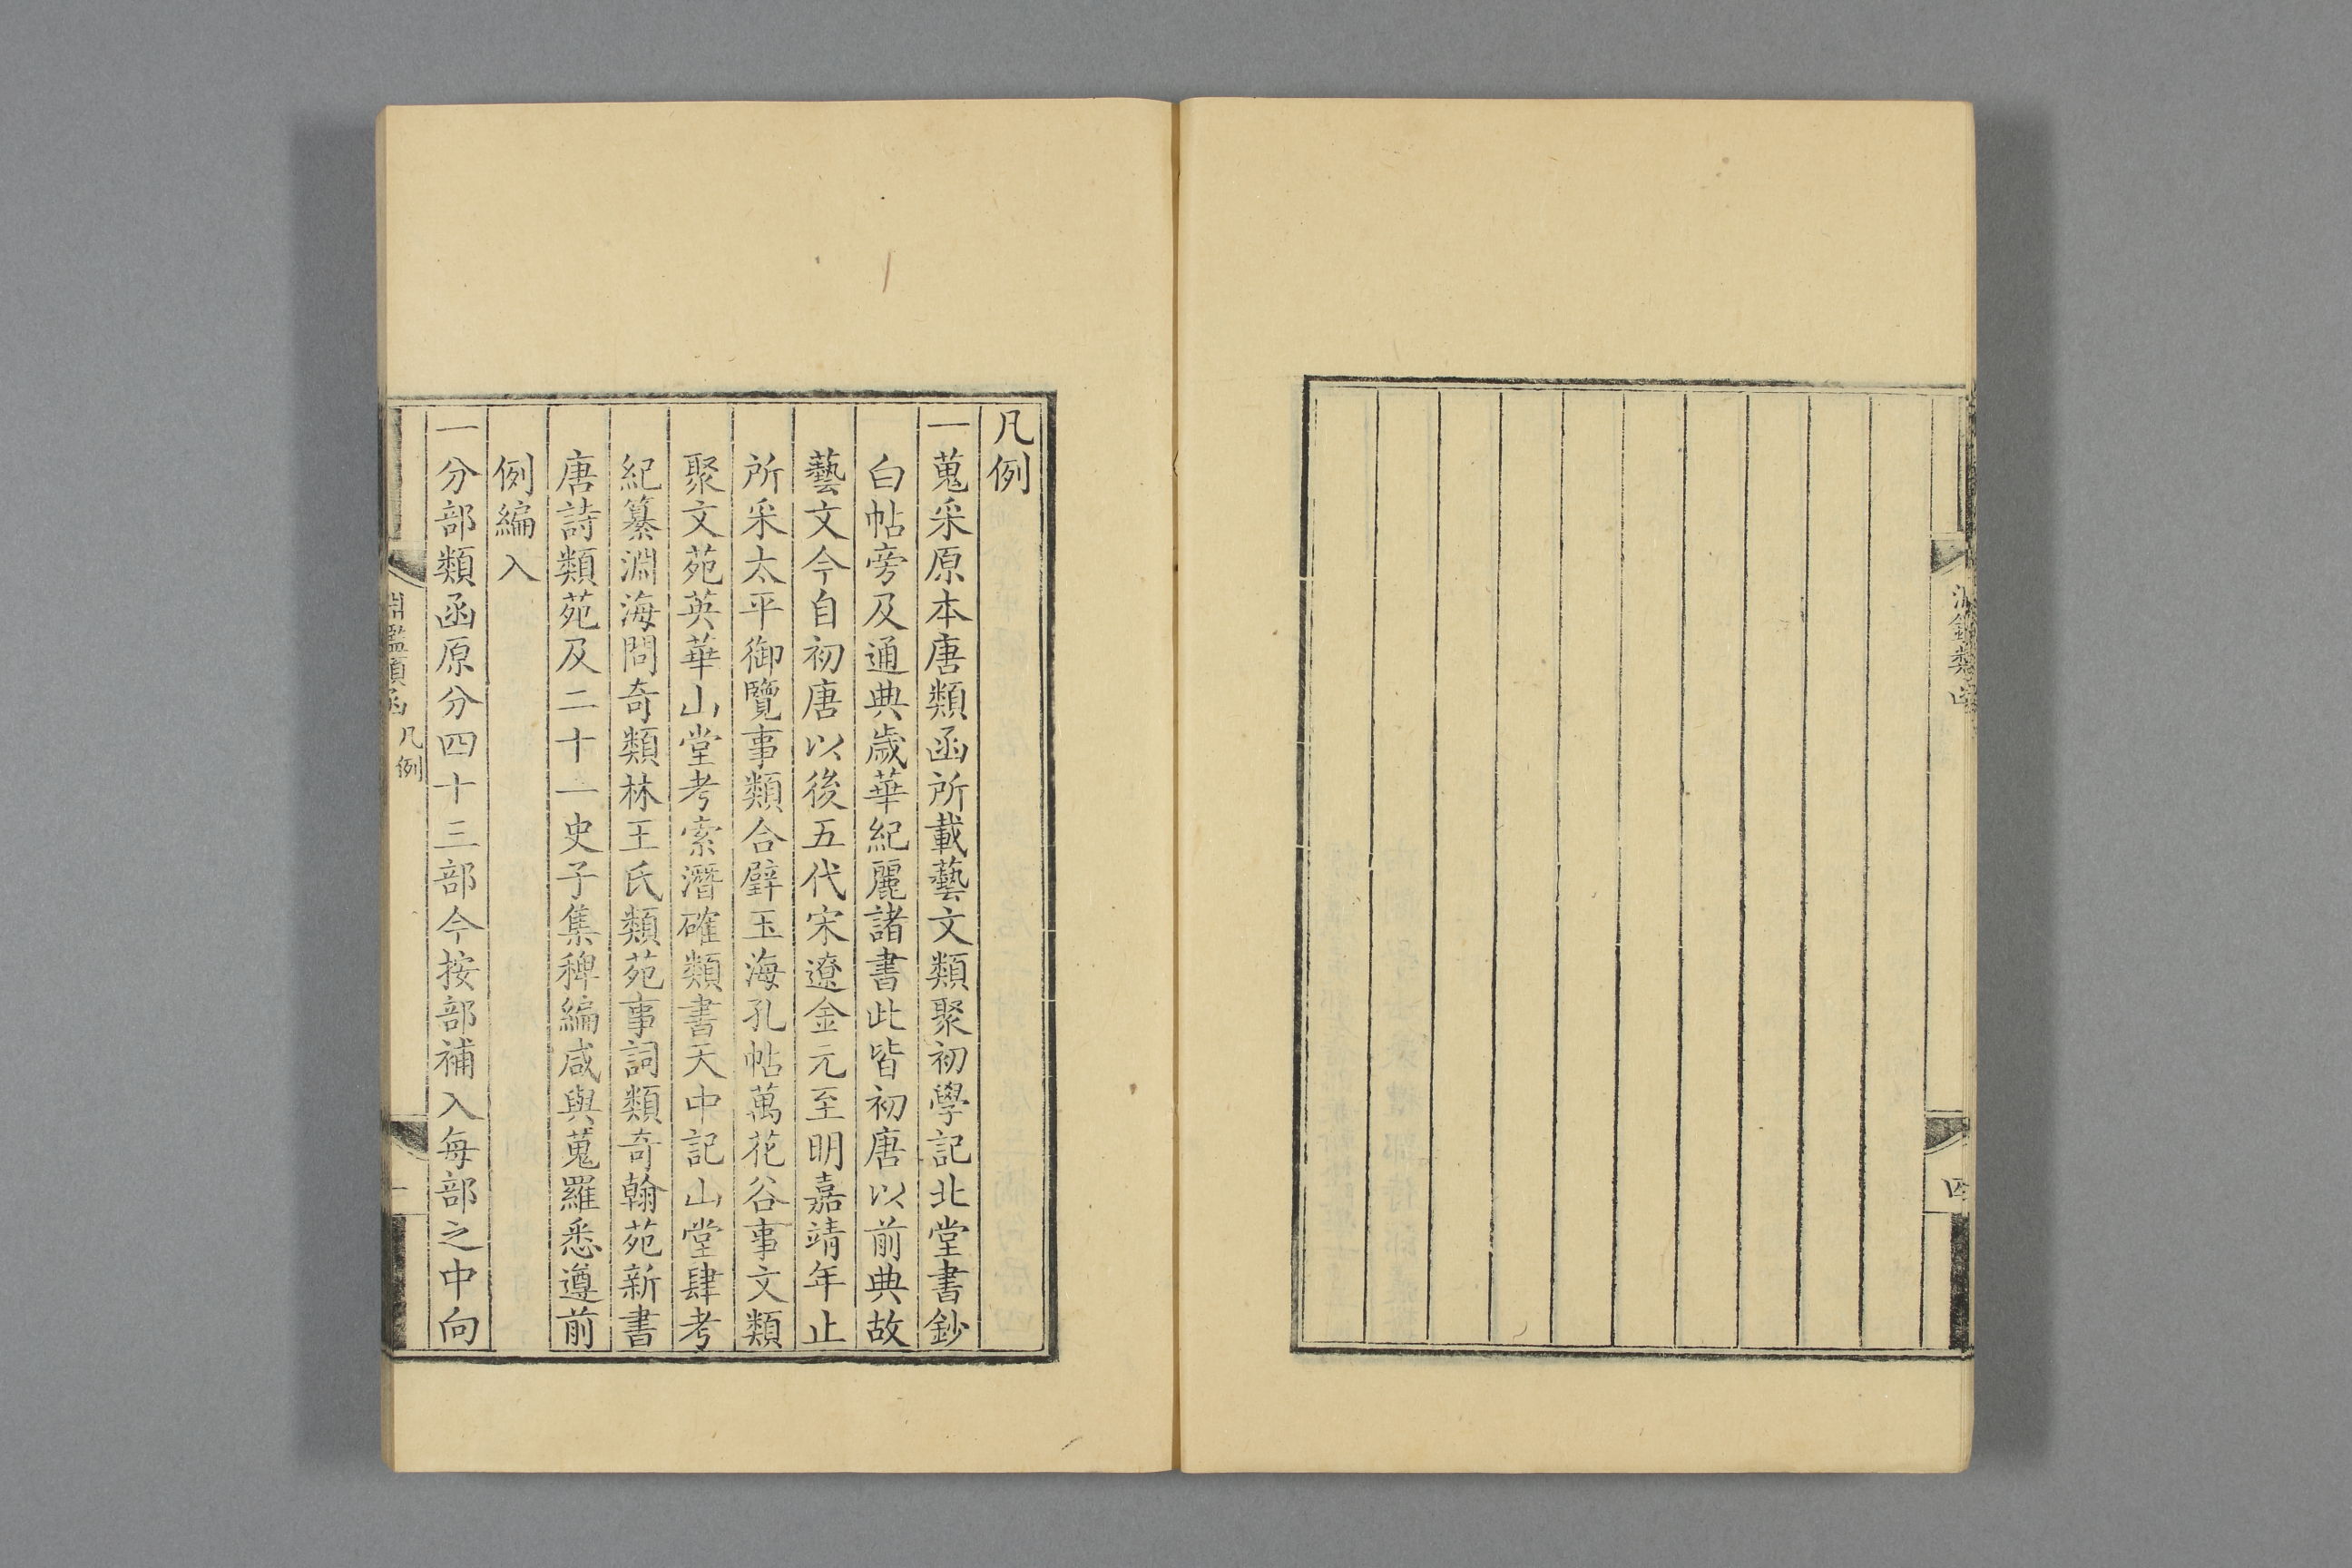 淵鑑類函
四
凡例
一蒐采原本唐類函所載藝文類聚初學記北堂書鈔
白帖旁及通典歲華紀麗諸書此皆初唐以前典故
藝文今自初唐以後五代宋遼金元至明嘉靖年止
所采太平御覽事類合璧玉海孔帖萬花谷事文類
聚文苑英華山堂考索潛確類書天中記山堂肆考
紀纂淵海問奇類林王氏類苑事詞類奇翰苑新書
唐詩類苑及二十一史子集稗編咸與蒐羅悉遵前
例編入
一分部類函原分四十三部今按部補入每部之中向
淵鑑類函 凡例
一